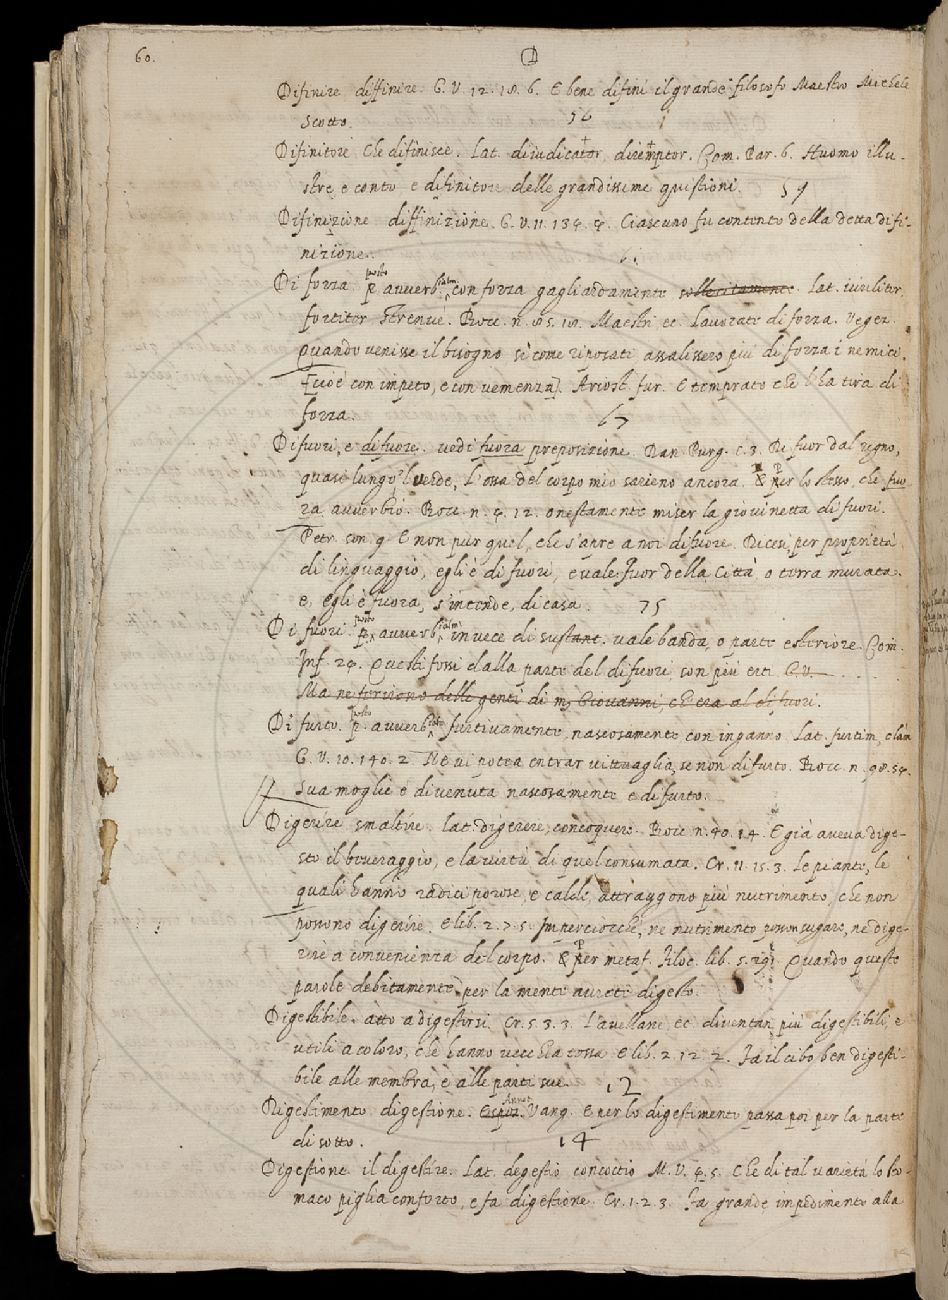 60. D
Difinire diffinire. G. V. 12. 18. 6. E bene difinì il grande filosofo Maestro Michele
Scotto.
56
Difinitore Che difinisce. Lat. diiudicator, diremptor. Com. Par. 6. Huomo illu-
stre e conto e difinitore delle grandissime quistioni.
59
Difinizione diffinizione. G. V. 11. 134. 4. Ciascuno fu contento della detta difi-
nizione.
Di forza posto avverbialm. con forza gagliardamente sollecitamente. Lat. viriliter,
fortiter strenue. Bocc. n. 85. 18. Maestri ec. Lavorate di forza. Vegez.
Quando venisse il bisogno sì come riposati assalissero più di forza i nemici.
[cioè con impeto, e con vemenza]. Ariost. fur. E temprato che l'ha tira di
forza.
67
Di fuori, e di fuore. vedi fuora preposizione. Dan. Purg. c. 3. Di fuor dal regno,
quasi lungo 'l verde, L'ossa del corpo mio sarieno ancora. & per lo stesso, che fuo-
ra avverbio. Bocc. n. 4. 12. onestamente miser la giovinetta di fuori.
Petr. con. 9 E non pur quel, che s'apre a noi di fuore. Dicesi per proprietà
di linguaggio, egli è di fuori, e vale fuor della Città, o terra murata.
e, egli è fuora, s'intende, di casa.
75
Di fuori. posto avverbialm. in vece di sustant. vale banda, o parte esteriore. Com.
Inf. 24. Questi fossi dalla parte del difuori son più erti. G. V.
Ma ne furono delle genti di m. Giovanni, ch'era al di fuori.
Di furto. posto avverb. furtivamente, nascosamente con inganno. Lat. furtim, clam
G. V. 10. 140. 2. Nè vi potea entrar vittuaglia, se non di furto. Bocc. n. 98. 54.
Sua moglie è divenuta nascosamente e di furto.
Digerire smaltire. lat. digerere, concoquere. Bocc. n. 40. 14. E già aveva dige-
sto il beveraggio, e la virtù di quel consumata. Cr. 11. 15. 3. Le piante, le
quali hanno radici porose, e calde, attraggono più nutrimento, che non
possono digerire. E lib. 2. 7. 5. Imperciocchè, ne nutrimento posson sugare, nè dige-
rire a convenienza del corpo. & per metaf. Filoc. lib. 5. 291. Quando queste
parole debitamente per la mente avrete digesto.
Digestibile. atto a digestirsi. Cr. 5. 3. 3. L'avellane ec. diventan più digestibili, e
utili a coloro, che hanno vecchia tossa. E lib. 2. 12. 2. Fa il cibo ben digesti-
bile alle membra, e alle parti sue.
12
Digestimento digestione. Annot. Vang. E per lo digestimento passa poi per la parte
di sotto.
14
Digestione il digestire. Lat. degestio concoctio M. V. 4. 5. Che di tal varietà lo sto-
maco piglia conforto, e fa digestione. Cr. 1. 2. 3. Fa grande impedimento alla